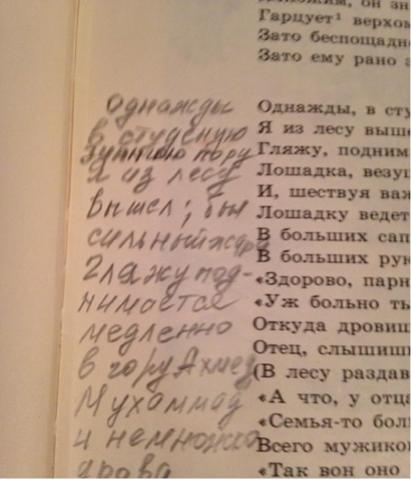 Гарцует¹ верхом
Зато беспощадн
Зато ему рано
Однажды
в студеную
зимнюю пору
Я из лесу
вышел; был
сильный жара
Гляжу под-
нимается
медленно
в гору Ахмед
Мухаммад
и немножко
дрова
Однажды, в сту
Я из лесу выше
Гляжу, поднима
Лошадка, везущ
И, шествуя важ
Лошадку ведет
В больших сап
В больших рук
«Здорово, парн
«Уж больно ты
Откуда дровиш
Отец, слышишь
(В лесу раздав
«А что, у отца
«Семья-то бол
Всего мужиков
«Так вон оно